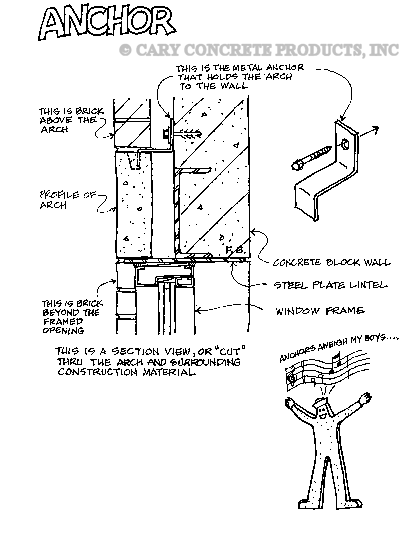 ANCHOR
© CARY CONCRETE PRODUCTS, INC
THIS IS THE METAL ANCHOR
THAT HOLDS THE ARCH
TO THE WALL
THIS IS BRICK
ABOVE THE
ARCH
PROFILE OF
ARCH
F.S.
CONCRETE BLOCK WALL
STEEL PLATE LINTEL
WINDOW FRAME
THIS IS BRICK
BEYOND THE
FRAMED
OPENING
THIS IS A SECTION VIEW, OR "CUT"
THRU THE ARCH AND SURROUNDING
CONSTRUCTION MATERIAL
ANCHORS AWEIGH MY BOYS....